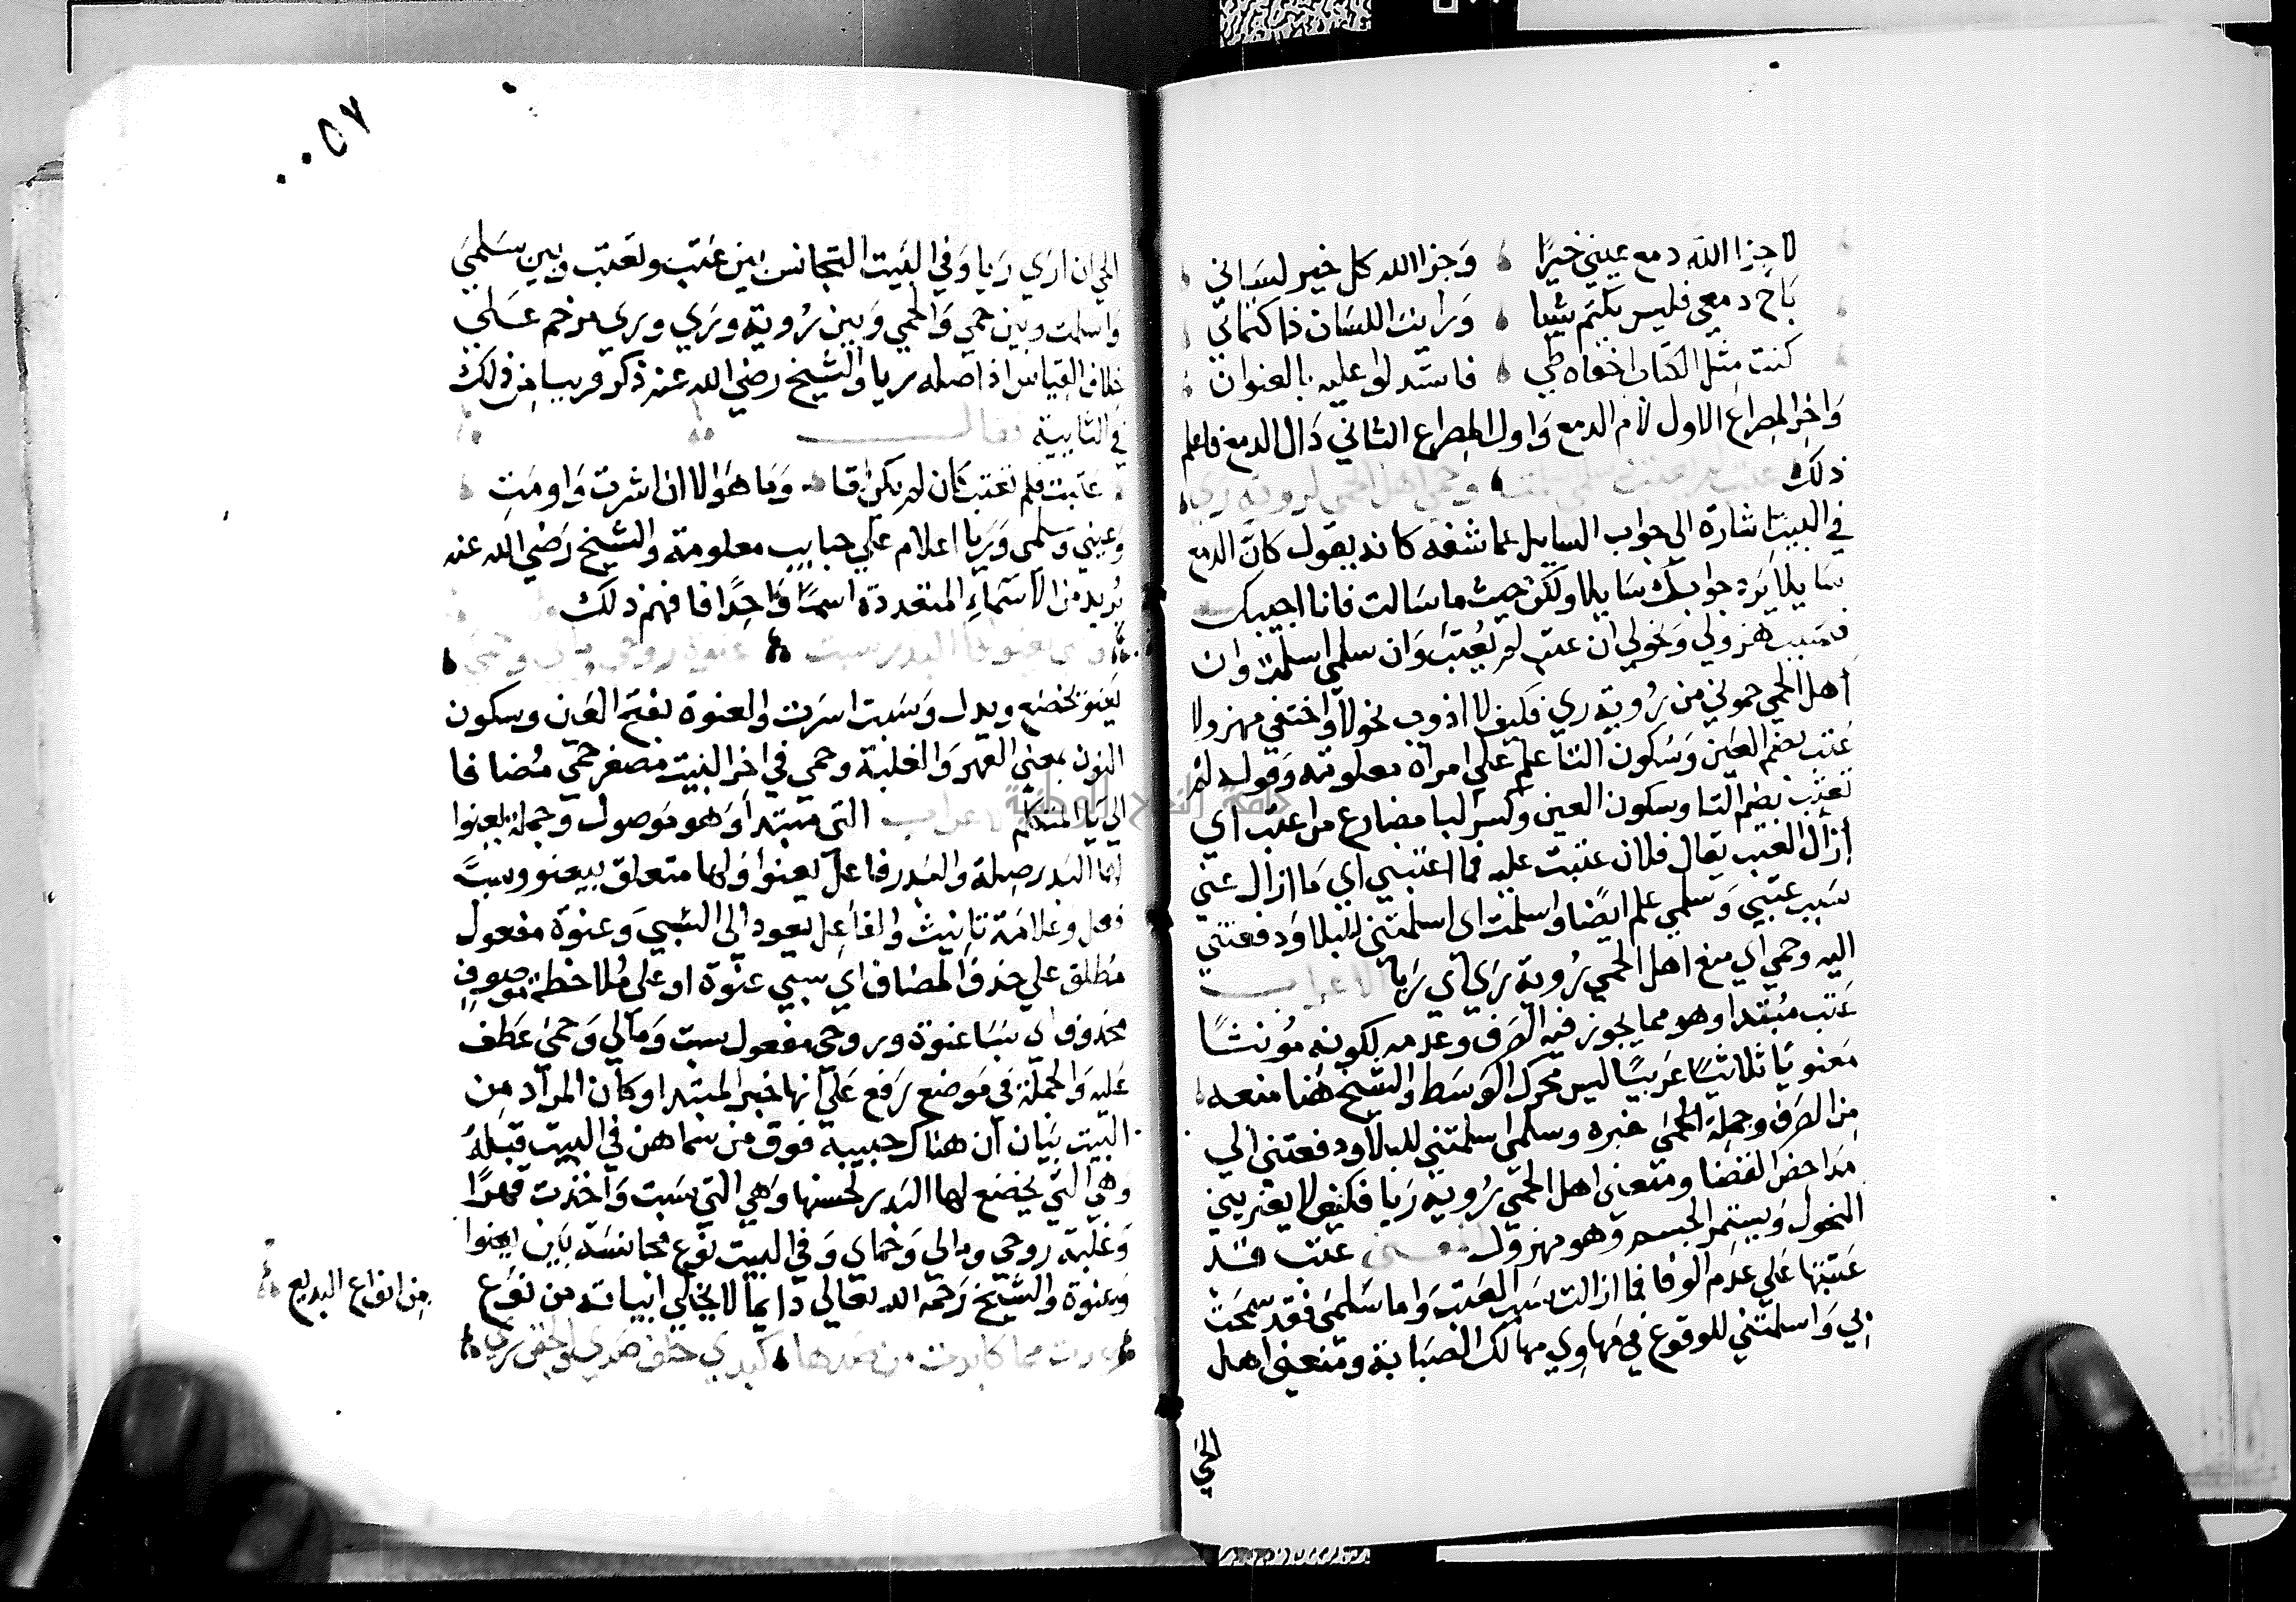 لا جزا الله دمع عيني خيرًا وجزا الله كل خير لساني
باح دمعي فليس يكتم شيا ورايت اللسان ذا كتماني
كنت مثل الكتاب اخفاه طي فاستدلوا عليه بالعنوان
واخر المصراع الاول لام الدمع واول المصراع الثاني دال الدمع فاعلم
ذلك عتب لم تعتب سلمى اسلمت وحمى اهل الحمى روية ري
في البيت اشارة الي جواب السايل عما شفه كانه يقول كان الدمع
سايلا يرد جوابك سايلا ولكن حيث ما سالت فانا اجيبك
فسبب هزولي ونحولي ان عتب لم تعتب وان سلمى اسلمت وان
أهل الحمي حموني من روية ري فكيف لا اذوب نحولا واختفي مهزولا
عتب بضم العين وسكون التا علم علي امراة معلومة وقوله لم
تعتب بضم التا وسكون العين وكسر البا مضارع من اعتب اي
أزال العتب يقال فلان عتبت عليه فما اعتبني اي ما ازال عني
سبب عتبي وسلمي علم ايضا واسلمت اي اسلمتني للبلا ودفعتني
اليه وحمي اي منع اهل الحمي روية ري اي ريا الاعراب
عتب مبتدا وهو مما يجوز فيه الصرف وعدمه لكونه مونثا
معنويا ثلاثيا عربيا ليس محرك الوسط والشيخ هنا منعه
من الصرف وجملة الحمي خبره وسلمى اسلمتني للبلا ودفعتني الي
مداحض القضا ومنعني اهل الحمي روية ريا فكيف لا يعتريني
النحول ويستمر الجسم وهو مهزول المعنى عتب قد
عتبتها علي عدم الوفا فما ازالت سبب العتب واما سلمى فقد سمحت
بي واسلمتني للوقوع في مهاوي مهالك الصبابة ومنعني اهل
الحي
٥٧
الحي ان اري ريا وفي البيت التجانس بين عتب وتعتب وبين سلمي
واسلمت وبين حمي والحمي وبين روية وري وري مرخم علي
خلاف القياس اذ اصله ريا والشيخ رضي الله عنه ذكر قريبا من ذلك
في التايية فقال
عتبت فلم تعتب كان لم يكن لقا وما هو الا ان اشرت واومت
وعيني وسلمى وريا اعلام علي حبايب معلومة والشيخ رضي الله عنه
يريد من الاسماء المتعددة اسما واحدا فافهم ذلك
والتي يعنو لها البدر سبت عنوة روحي ومالي وحمي
يعنو يخضع ويذل وسبت اسرت والعنوة بفتح العين وسكون
النون بمعني القهر والغلبة وحمي في اخر البيت مصغر حمي مضافا
الي يا المتكلم الاعراب التي مبتدا وهو موصول وجملة يعنوا
لها البدر صلة والبدر فاعل يعنوا ولها متعلق بيعنو وسبت
فعل وعلامة تانيث والفاعل يعود الي التي وعنوة مفعول
مطلق علي حذف المضاف اي سبي عنوة او على ملاحظة موصوف
محذوف اي سبيا عنوة وروحي مفعول سبت ومالي وحمي عطف
عليه والجملة في موضع رفع علي انها خبر المبتدا وكان المراد من
البيت بيان ان هناك حبيبة فوق من سماهن في البيت قبله
وهي التي يخضع لها البدر لحسنها وهي التي سبت واخذت قهرا
وغلبة روحي ومالي وحماي وفي البيت نوع مجانسة باين يعنوا
وعنوة والشيخ رحمه الله تعالي دايما لا يخلي ابياته من نوع
من انواع البديع
مما كابدت من صدها كبدي حلف صدي والجفن ري